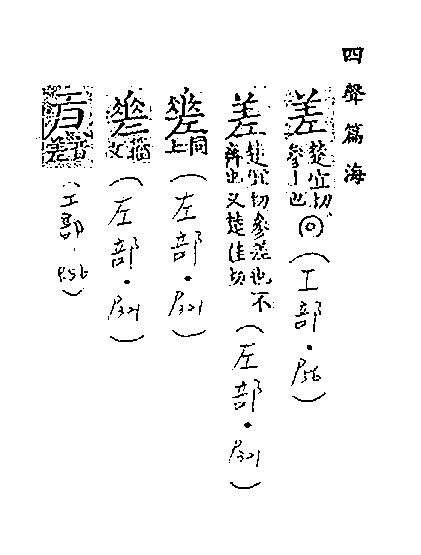 四聲篇海
差 楚宜切參丨也 (工部·P56)
差 楚宜切參差也不齊也又楚佳切 (左部·P321)
同上 (左部·P321)
籀文 (左部·P321)
音差 (工部·P56)